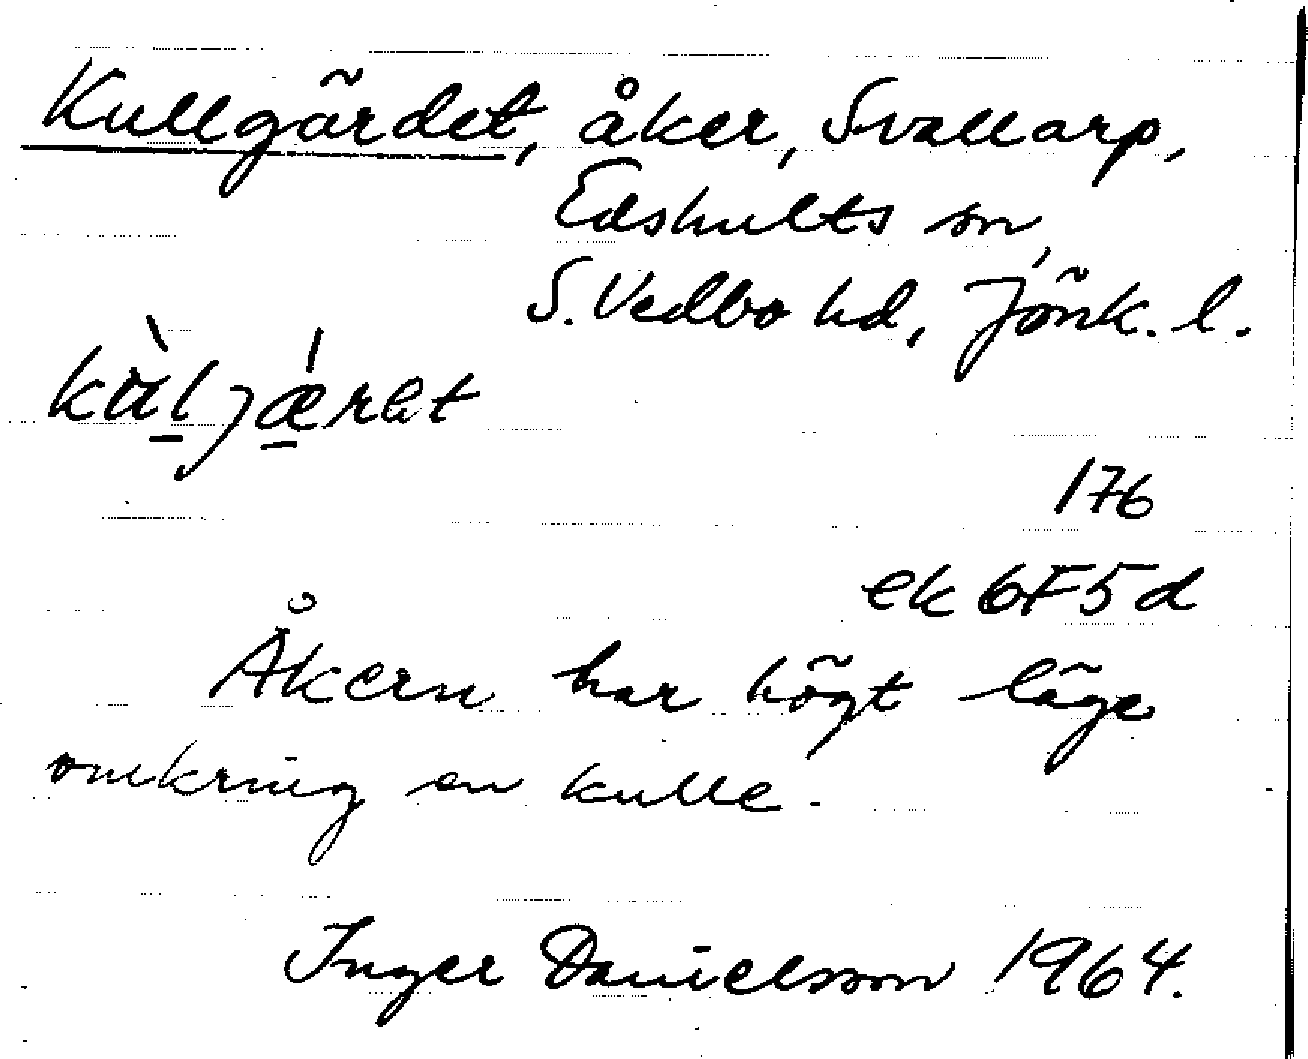 Kullgärdet, åker, Svallarp,
Edshults sn,
S. Vedbo hd, Jönk. l.
176
ek 6F5d
Åkern har högt läge
omkring en kulle.
Inger Danielsson 1964.